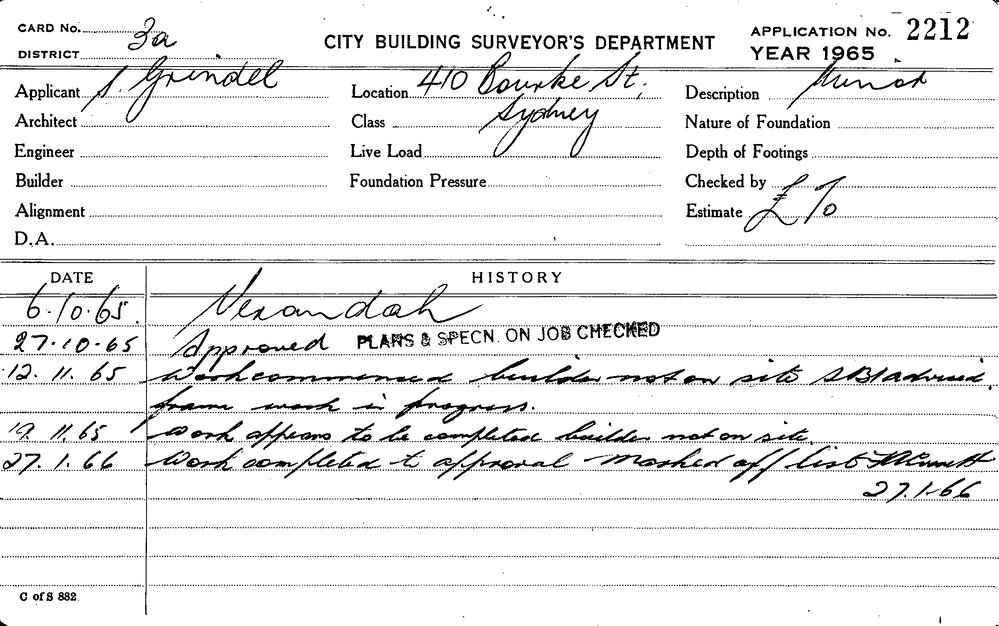 CARD No.
DISTRICT 3a
CITY BUILDING SURVEYOR'S DEPARTMENT
APPLICATION No. 2212
YEAR 1965
Applicant S. Grindel
Location 410 Bourke St,
Sydney
Description Minor
Architect
Class
Nature of Foundation
Engineer
Live Load
Depth of Footings
Builder
Foundation Pressure
Checked by
Alignment
Estimate £
D.A.
DATE HISTORY
6.10.65. Verandah
27.10.65 Approved PLANS & SPECN. ON JOB CHECKED
12.11.65 Work commenced builder not on site advised
frame work in progress.
19.11.65 Work appears to be completed builder not on site.
27.1.66 Work completed to approval marked off list
27.1.66
C of S 882